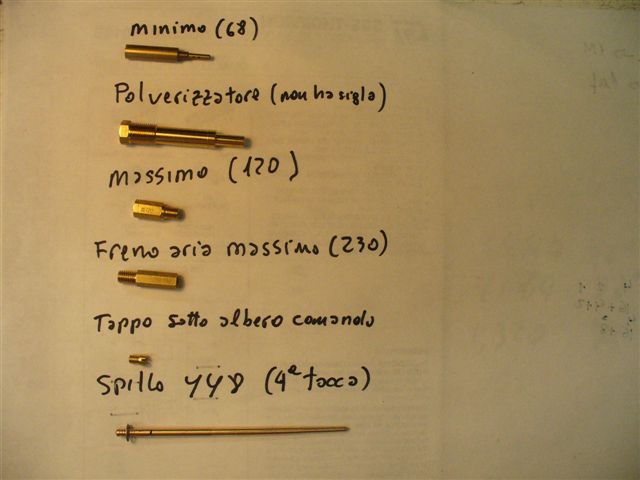 minimo (68)
Polverizzatore (non ha sigla)
massimo (120)
Freno aria massimo (230)
Tappo sotto albero comando
Spillo (4ª tacca)